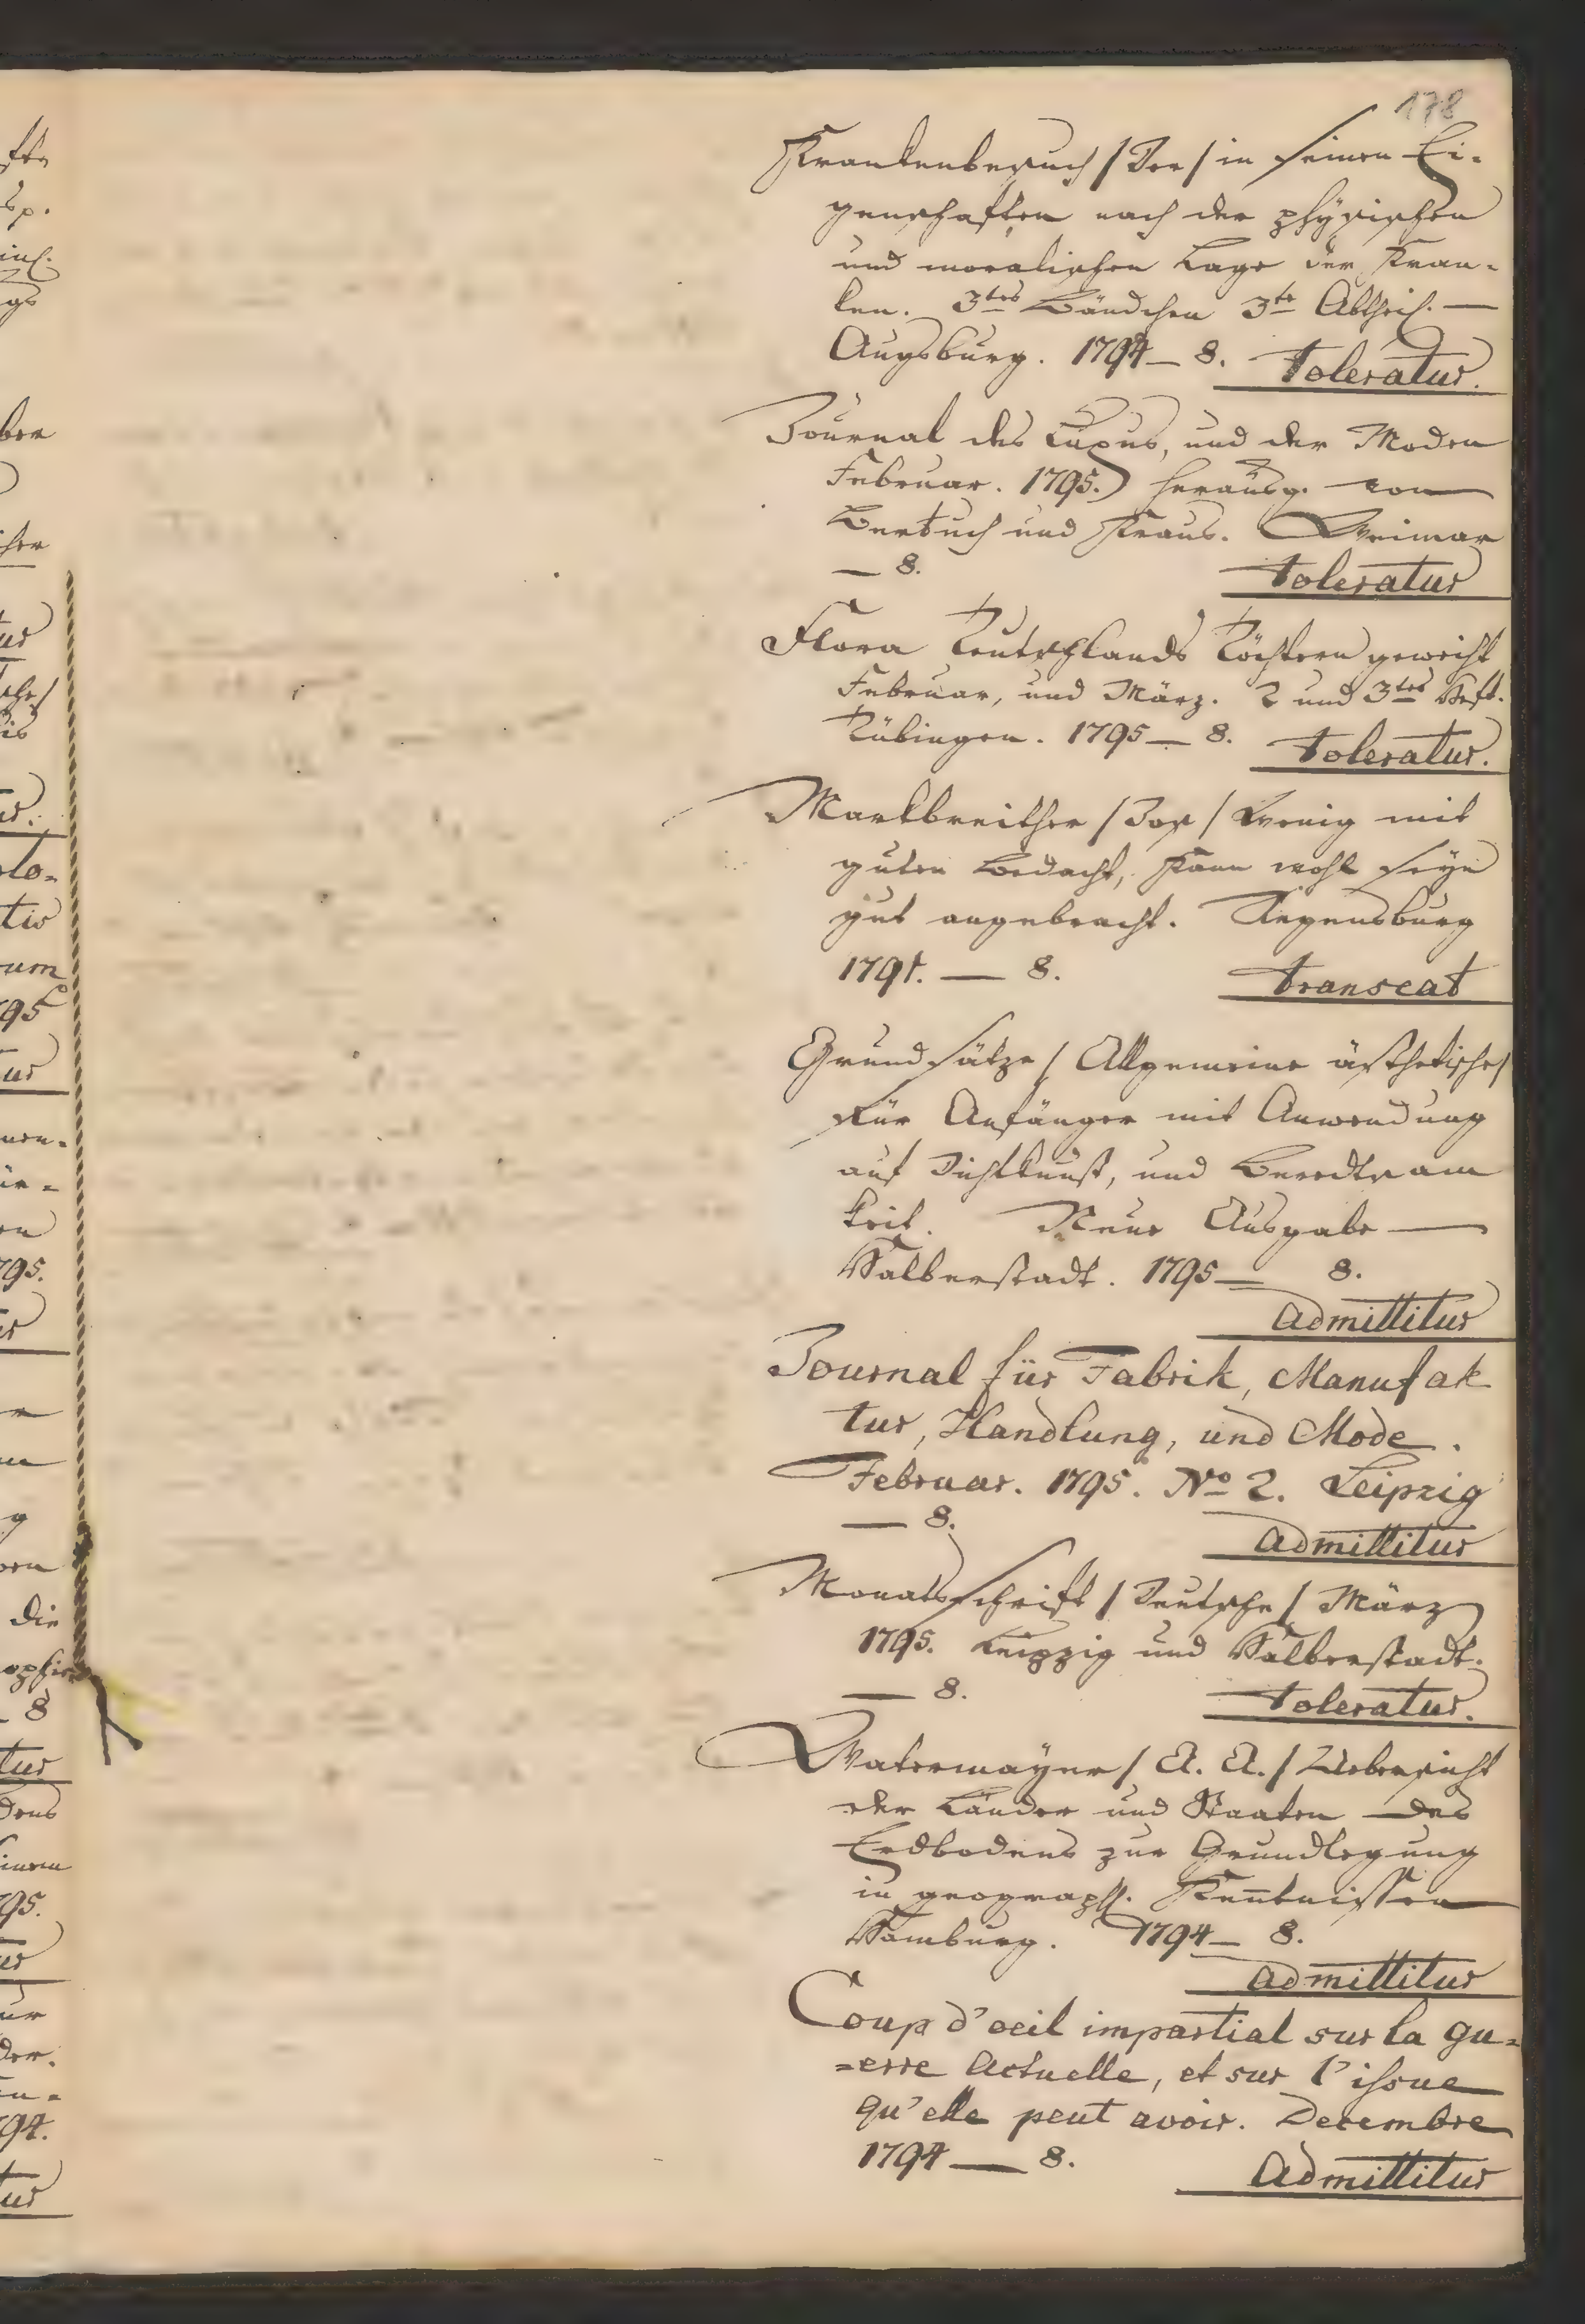 178
Krankenbesuch /Der/ in seinen Ei-
genschaften nach der physischen
und moralischen Lage der Kran-
ken. 3tes Bändchen 3te Abtheil. —
Augsburg. 1794 — 8. Toleratur.
Journal des Luxus, und der Moden
Februar. 1795. herausg. von
Bertuch und Kraus. Weimar
— 8. Toleratur
Flora Teutschlands Töchtern geweiht
Februar, und März. 2 und 3tes Heft.
Tübingen. 1795 — 8. Toleratur.
Marktbreither /Jos/ Wenig mit
guten Bedacht, kann wohl seyn
gut angebracht. Regensburg
1791. — 8. Transeat
Grundsätze / Allgemeine ästhetische/
für Anfänger mit Anwendung
auf Dichtkunst, und Beredtsam
keit. Neue Ausgabe —
Halberstadt. 1795 — 8.
Admittitur
Journal für Fabrik, Manufak
tur, Handlung, und Mode.
Februar. 1795. No 2. Leipzig
— 8. Admittitur
Monatsschrift / Deutsche / März
1795. Leipzig und Halberstadt.
— 8. Toleratur.
Watermayer / A. A. / Uebersicht
der Länder und Staaten des
Erdbodens zur Grundlegung
in geograph. Kenntnissen
Hamburg. 1794 — 8.
Admittitur
Coup d'oeil impartial sur la gu=
=erre Actuelle, et sur l'issue
qu'elle peut avoir. Decembre
1794 — 8. Admittitur